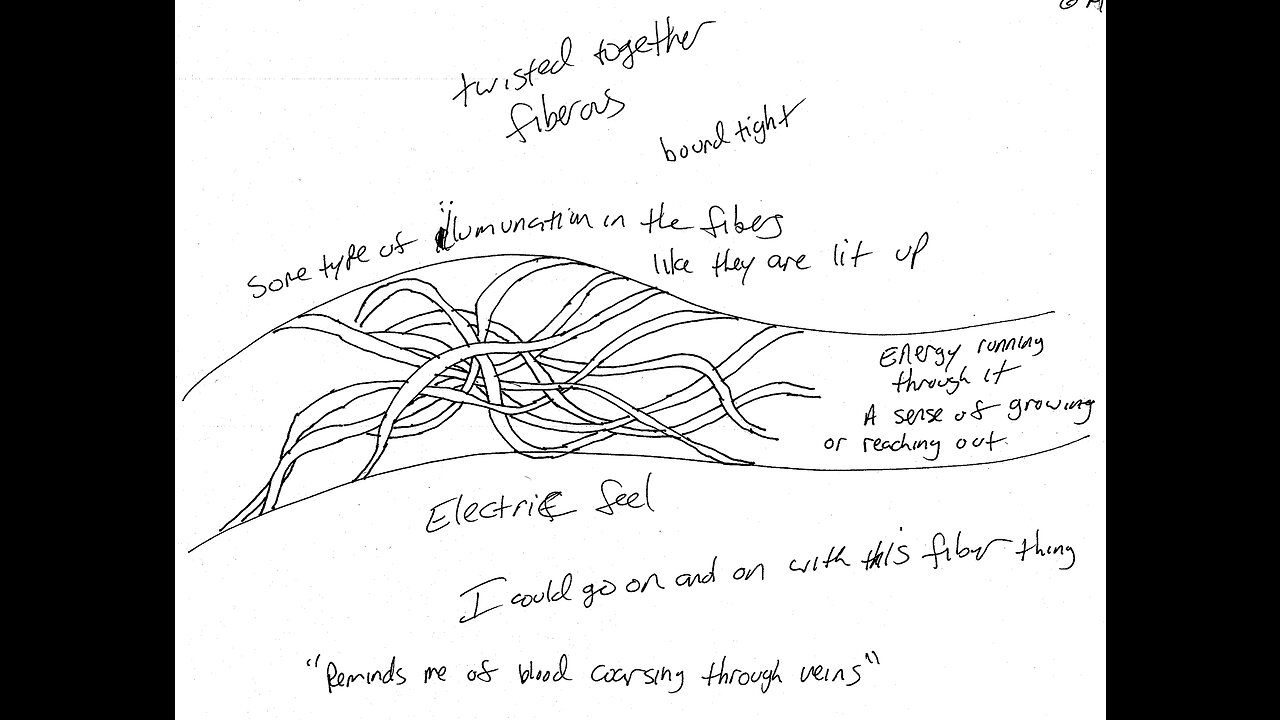 twisted together
fiberous
bound tight
Some type of illumunation in the fibers
like they are lit up
Energy running
through it
A sense of growing
or reaching out
Electric feel
I could go on and on with this fiber thing
"Reminds me of blood coarsing through veins"